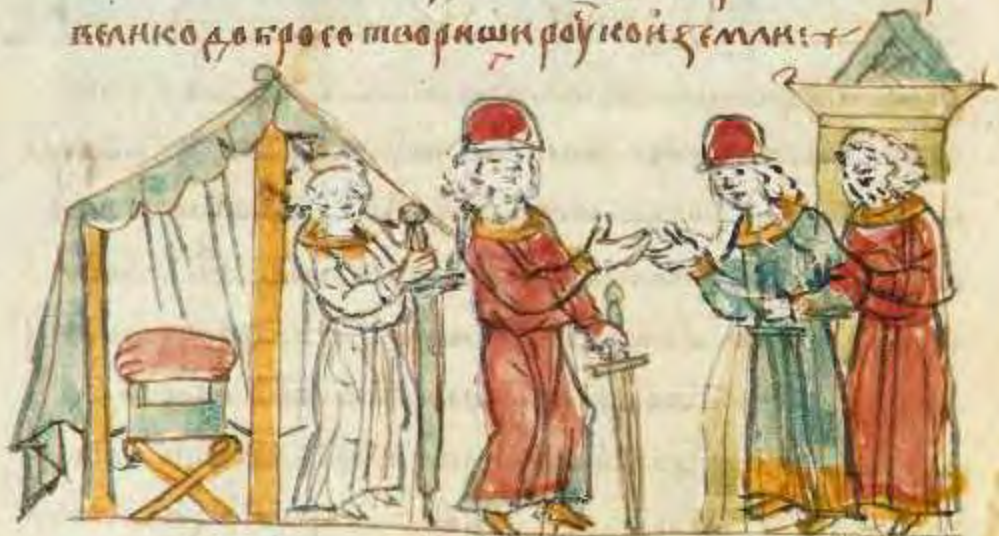 велико добро сотвориши роускои земли: